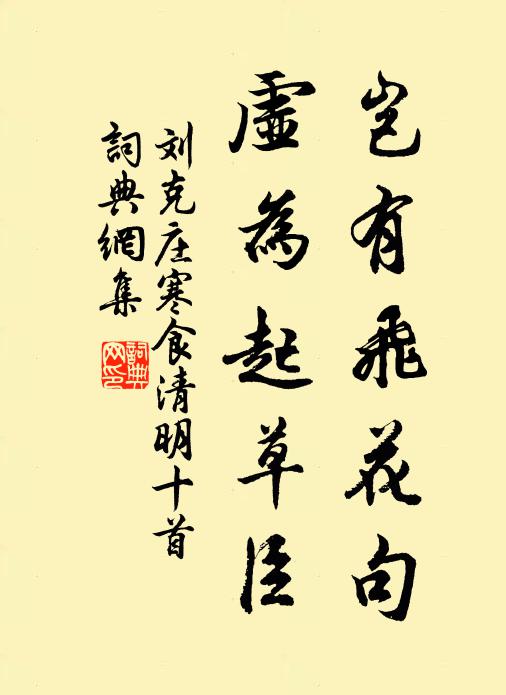 岂有飛花句
虛為起草臣
刘克庄寒食清明十首
詞典網集
詞典
网印